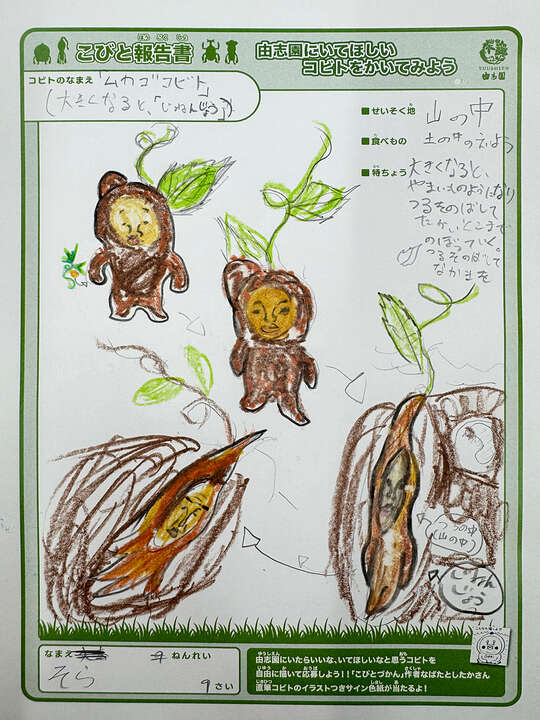 こびと報告書
ほうこくしょ
由志園にいてほしい
コビトをかいてみよう
YUUSHIEN
由志園
コビトのなまえ
「ムカゴコビト」
(大きくなると、「じねんじょう」)
■せいそく地 山の中
■食べもの 土の中のえいよう
■特ちょう 大きくなると、
やまいものようになり
つるをのばして
たかいとこまで
のぼっていく。
つるをのばして
なかまを
つちの中
(山の中)
じねん
じょう
なまえ
ねんれい
そら
9さい
由志園にいたらいいな、いてほしいなと思うコビトを
自由に描いて応募しよう!!「こびとづかん」作者なばたとしたかさん
直筆コビトのイラストつきサイン色紙が当たるよ!